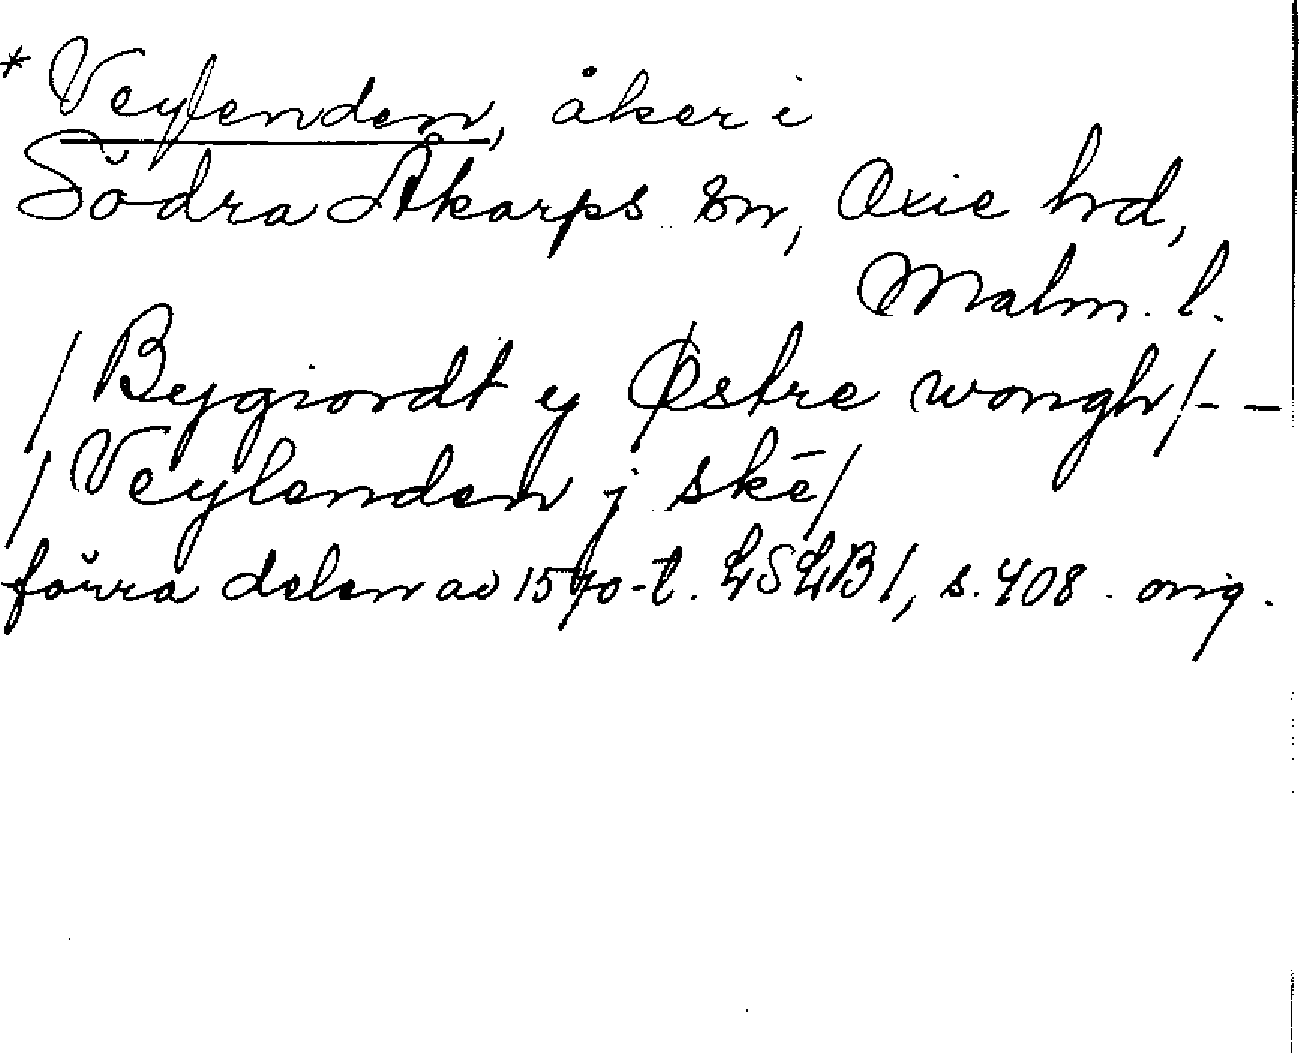 * Veylenden, åker i
Södra Åkarps sn, Oxie hd,
Malm. l.
/ Bygiordt y Østre wongh / - -
/ Veylenden j skē /
förra delen av 1570-t. LSLB 1, s. 408. orig.